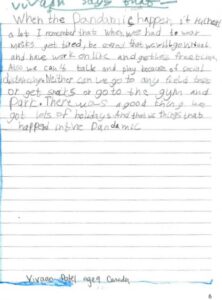 Vivaan says that
When the Pandamic happen, it
a lot I remember that when we had to wear
masks get tired, be that we will go virtual
and have work on
Also we can't talk and play because of social
distancing Neither can we go to any field
or get snacks or go to the gym and
park. There was a good thing we
got lots of holidays And that was things that
happend in the Pandamic
Vivaan Patel age 9 Canada